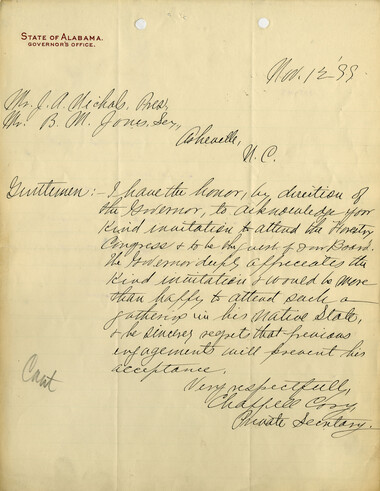 STATE OF ALABAMA.
GOVERNOR'S OFFICE.
Nov. 12 '99
Mr. J. A. Nichols, Pres,
Mr. B. M. Jones, Sec,
Asheville,
N. C.
Gentlemen:- I have the honor, by direction of
the Governor, to acknowledge your
kind invitation to attend the Forestry
Congress & to be the guest of your Board.
The Governor deeply appreciates the
kind invitation & would be more
than happy to attend such a
gathering in his Native State,
& he sincerely regrets that previous
engagements will prevent his
acceptance.
Very respectfully,
Chappell Cory,
Private Secretary.
Cant